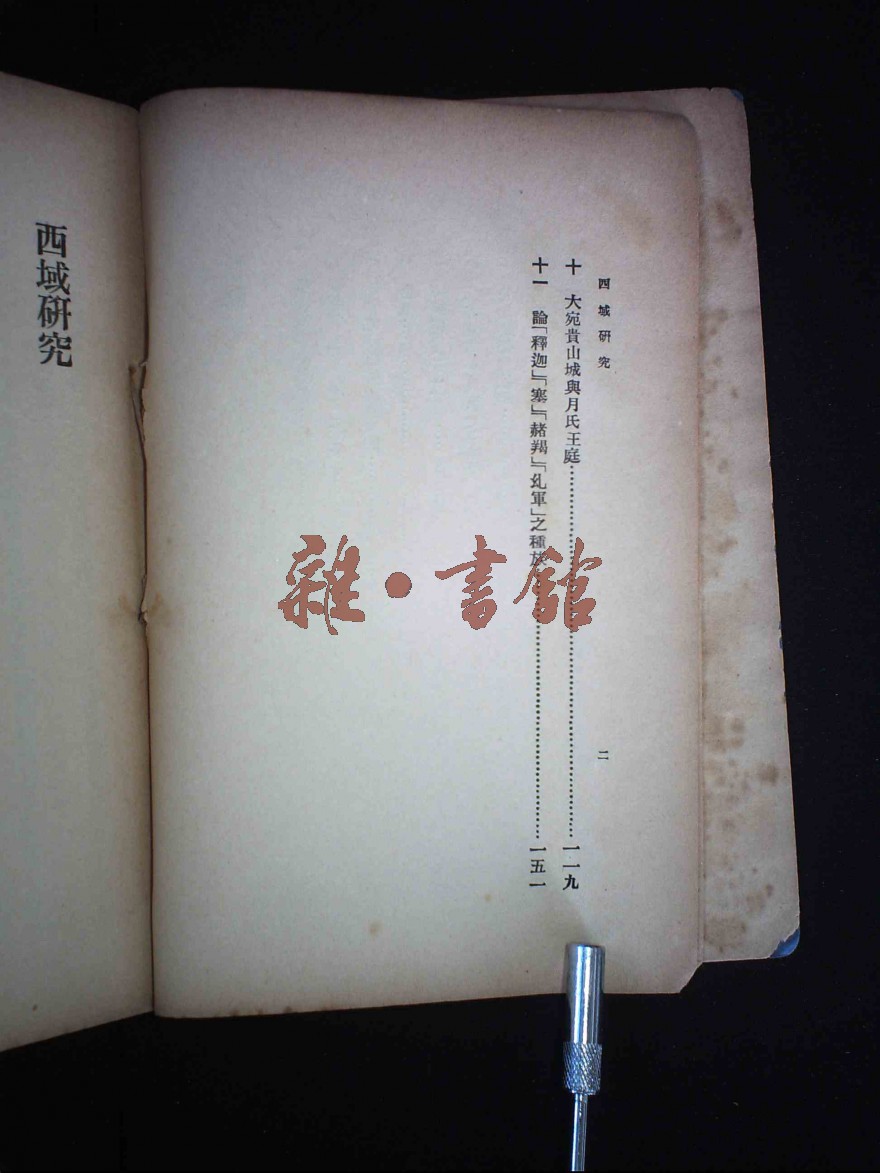 西域研究
十　大宛貴山城與月氏王庭……一一九
十一　論「釋迦」「塞」「赭羯」「乣軍」之種族……一五一
二
西域研究
雜·書館